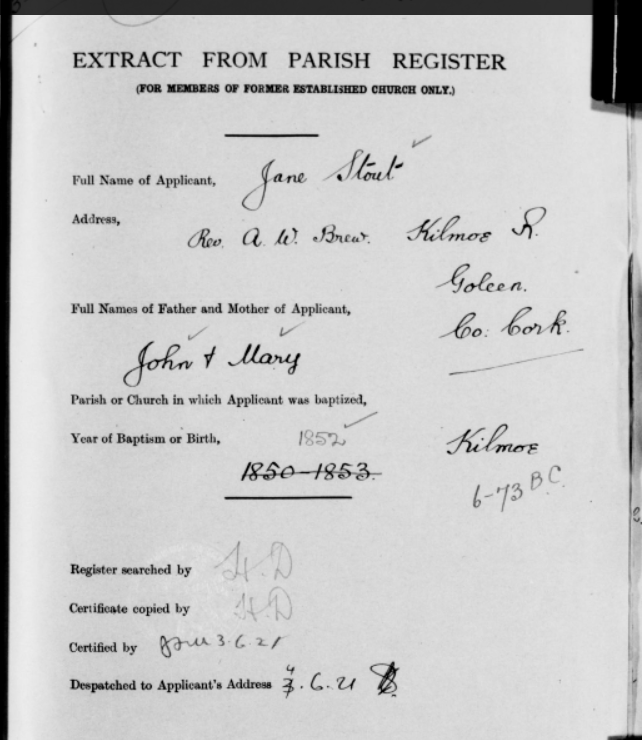 EXTRACT FROM PARISH REGISTER
(FOR MEMBERS OF FORMER ESTABLISHED CHURCH ONLY.)
Full Name of Applicant, Jane Stout
Address,
Rev. A. W. Brew. Kilmoe R.
Goleen.
Co: Cork.
Full Names of Father and Mother of Applicant,
John & Mary
Parish or Church in which Applicant was baptized,
Kilmoe
Year of Baptism or Birth, 1852
1850-1853.
6-73 B.C.
Register searched by H.D
Certificate copied by H.D
Certified by 3.6.21
Despatched to Applicant's Address 4.6.21